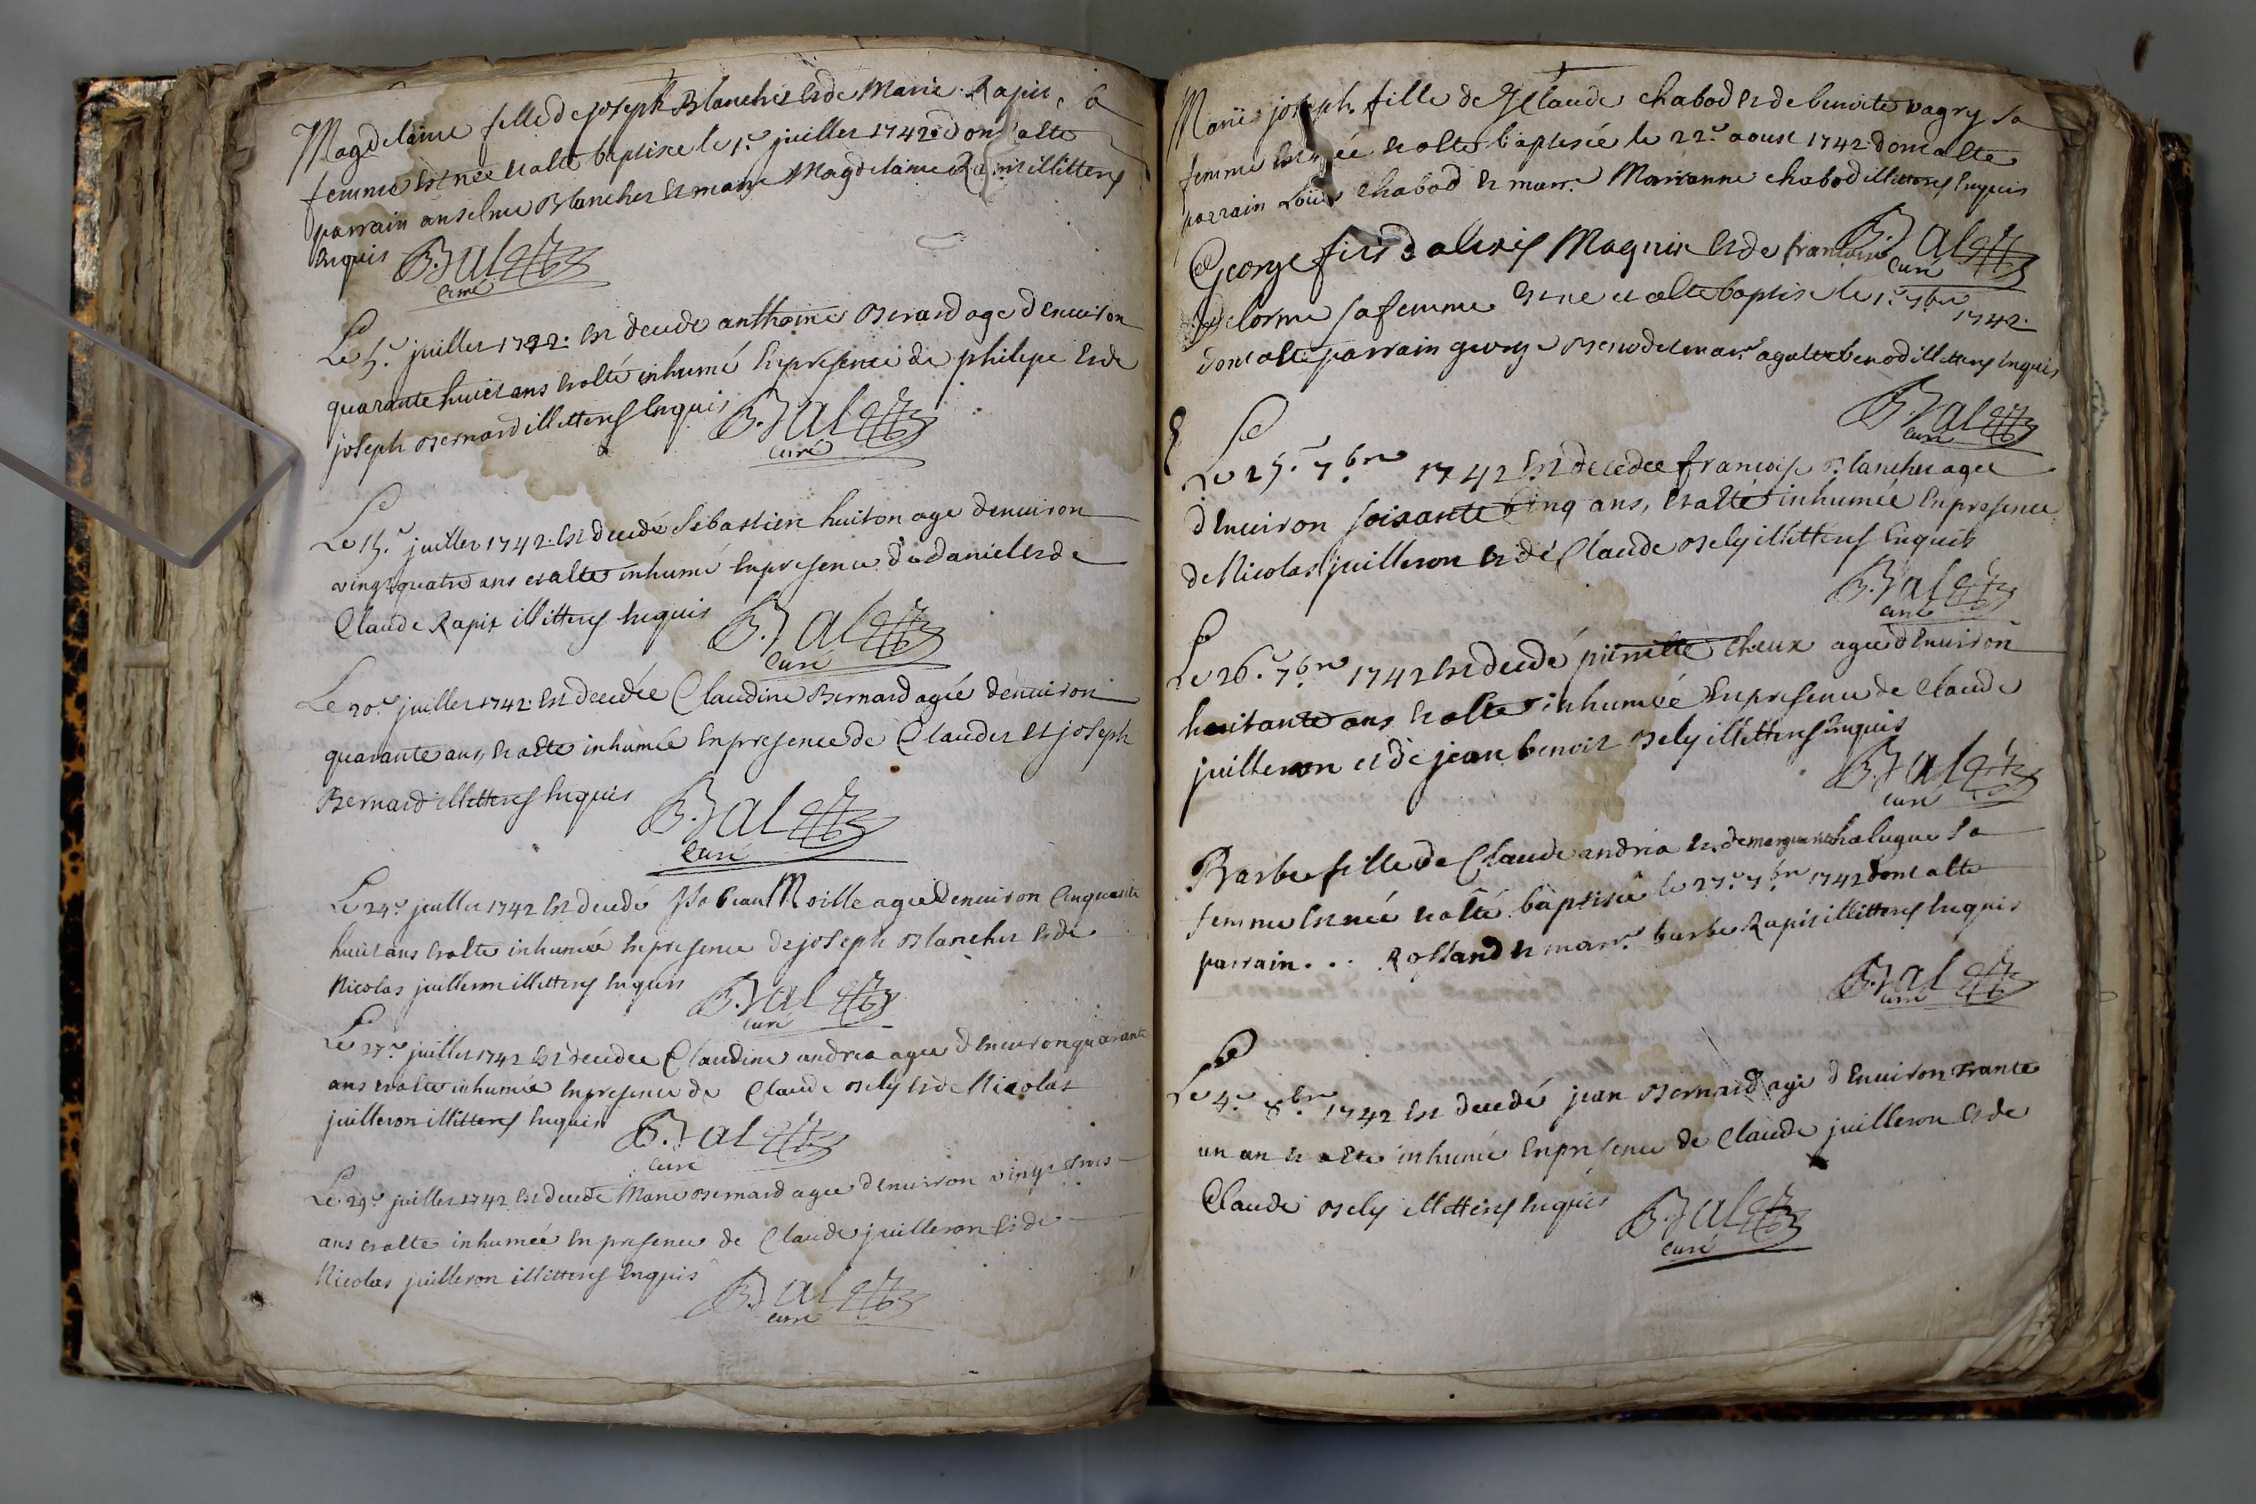 Magdelaine fille de joseph Blanchet et de Marie Rapin, sa
femme est née et a este baptisee le 1.er juillet 1742 dont a esté
parrain anselme Blanchet et marr.e Magdelaine Rapin illitterés
Enquis B. Jalet
Curé
Le 5.e juillet 1742. est decedé anthoine Bernard agé d'Environ
quarante huict ans et a esté inhumé En presence de philipe et de
joseph Bernard illitterés Enquis B. Jalet
curé
Le
Le 15.e juillet 1742. est decedé Sebastien huiton agé denuiron
vingt quatre ans et a esté inhumé En presence de daniel et de
Claude Rapin illitterés Enquis B. Jalet
Curé
Le 20.e juillet 1742. est decedée Claudine Bernard agée denuiron
quarante ans, et a este inhumée En presence de Claude et joseph
Bernard illitterés Enquis B. Jalet
Curé
Le 24.e juillet 1742 est decedé agée denuiron Cinquante
huict ans et a este inhumée En presence de joseph Blanchet et de
Nicolas juilleron illitterés Enquis B. Jalet
curé
Le
Le 27.e juillet 1742 est decedee Claudine andrea agee d'Enuiron quarante
ans et a este inhumée En presence de Claude Bely et de Nicolas
juilleron illitterés Enquis B. Jalet
curé
Le 29.e juillet 1742 est decedé Marie Bernard agee d'enuiron vingt trois
ans et a este inhumée En presence de Claude juilleron et de
Nicolas juilleron illitterés Enquis B. Jalet
curé
Marie joseph fille de Claude chabod et de benoite vagry sa
femme est née et a este baptisée le 22.e aoust 1742 dont a este
parrain Loüis chabod et marr.e Marianne chabod illitterés Enquis
B. Jalet
Curé
George fils d'alexis Magnin et de francoise
Delorme sa femme est né et a este baptisé le 1.er 7bre 1742.
dont a esté parrain george benod et marr.e agathe benod illitterés Enquis
B. Jalet
curé
Le
Le 25.e 7.bre 1742 est decedee francoise Blanchet agee
d'Enuiron soixante Cinq ans, et a esté inhumée En presence
de Nicolas juilleron et de Claude Bely illitterés Enquis
B. Jalet
curé
Le
Le 26.e 7.bre 1742 est decedé pierrette cheux agee d'Enuiron
huitante ans et a este inhumée En presence de Claude
juilleron et de jean benoit Bely illitterés Enquis
B. Jalet
curé
Barbe fille de Claude andrea et de marguerite halugue sa
femme est née et a esté baptisée le 27.e 7.bre 1742 dont a esté
parrain . . . Rossand et marr.e barbe Rapin illitterés Enquis
B. Jalet
curé
Le
Le 4.e 8.bre 1742 est decedé jean Bernard agé d'Enuiron trante
un an et a este inhumé En presence de Claude juilleron et de
Claude Bely illitterés Enquis B. Jalet
curé